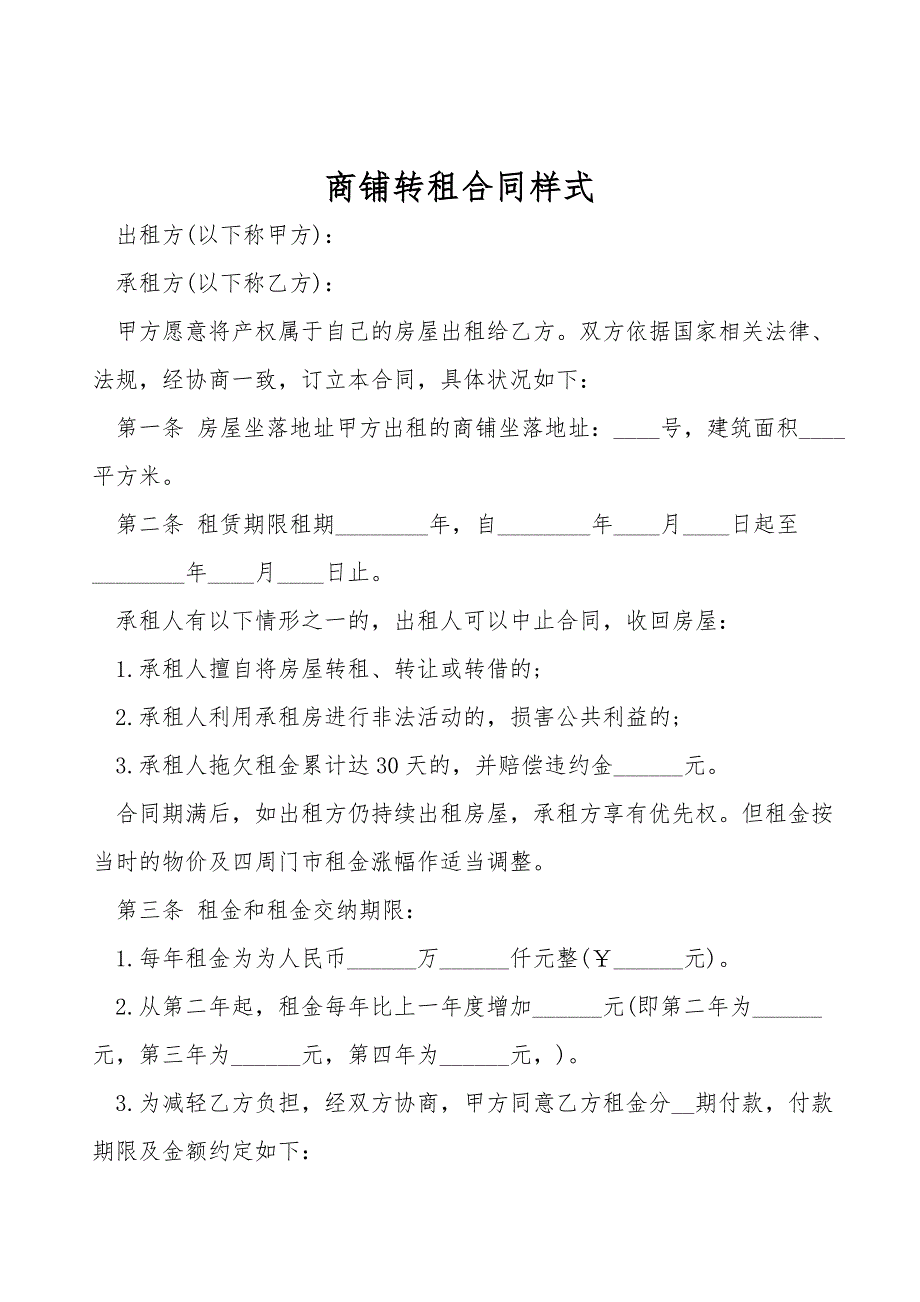 商铺转租合同样式
出租方(以下称甲方):
承租方(以下称乙方):
甲方愿意将产权属于自己的房屋出租给乙方。双方依据国家相关法律、
法规，经协商一致，订立本合同，具体状况如下:
第一条 房屋坐落地址甲方出租的商铺坐落地址:____号，建筑面积____
平方米。
第二条 租赁期限租期________年，自________年____月____日起至
________年____月____日止。
承租人有以下情形之一的，出租人可以中止合同，收回房屋:
1.承租人擅自将房屋转租、转让或转借的;
2.承租人利用承租房进行非法活动的，损害公共利益的;
3.承租人拖欠租金累计达 30 天的，并赔偿违约金______元。
合同期满后，如出租方仍持续出租房屋，承租方享有优先权。但租金按
当时的物价及四周门市租金涨幅作适当调整。
第三条 租金和租金交纳期限:
1.每年租金为为人民币______万______仟元整(￥______元)。
2.从第二年起，租金每年比上一年度增加______元(即第二年为______
元，第三年为______元，第四年为______元，)。
3.为减轻乙方负担，经双方协商，甲方同意乙方租金分__期付款，付款
期限及金额约定如下: